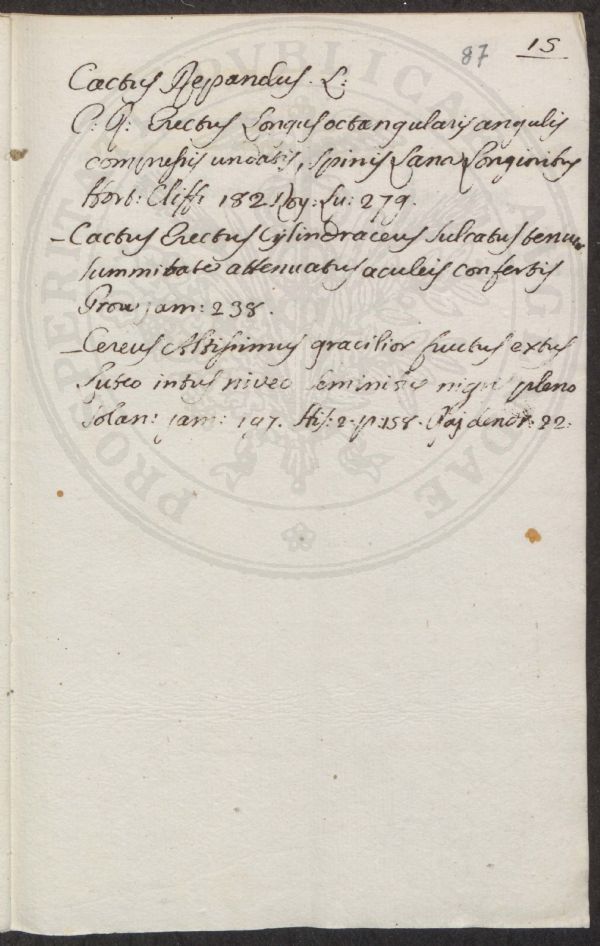 15
87
Cactus Repandus. L:
C: R: Erectus Longus octangularis angulis
compressis undatis, spinis Lana Longioribus
Hort: Cliff: 182 Roy: Lu: 279.
– Cactus Erectus Cylindraceus sulcatus tenuior
summitate attenuatus aculeis confertis
Brow jam: 238.
– Cereus Altissimus gracilior fructus extus
Luteo intus niveo seminibus nigris pleno
Solan: jam: 197. His: 2. p. 158. Raj dendr: 22.
PROSPERITATI PUBLICAE AUGENDAE